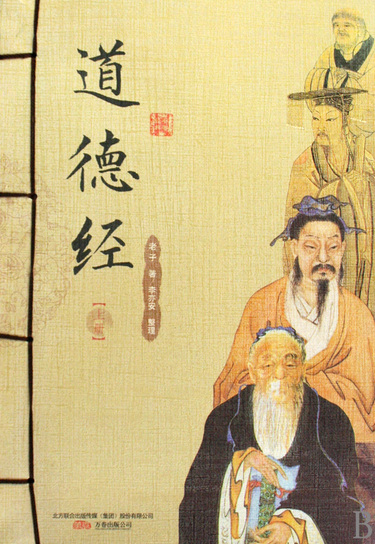 道德经
老子 著 李亦安 整理
北方联合出版传媒（集团）股份有限公司
万卷出版公司